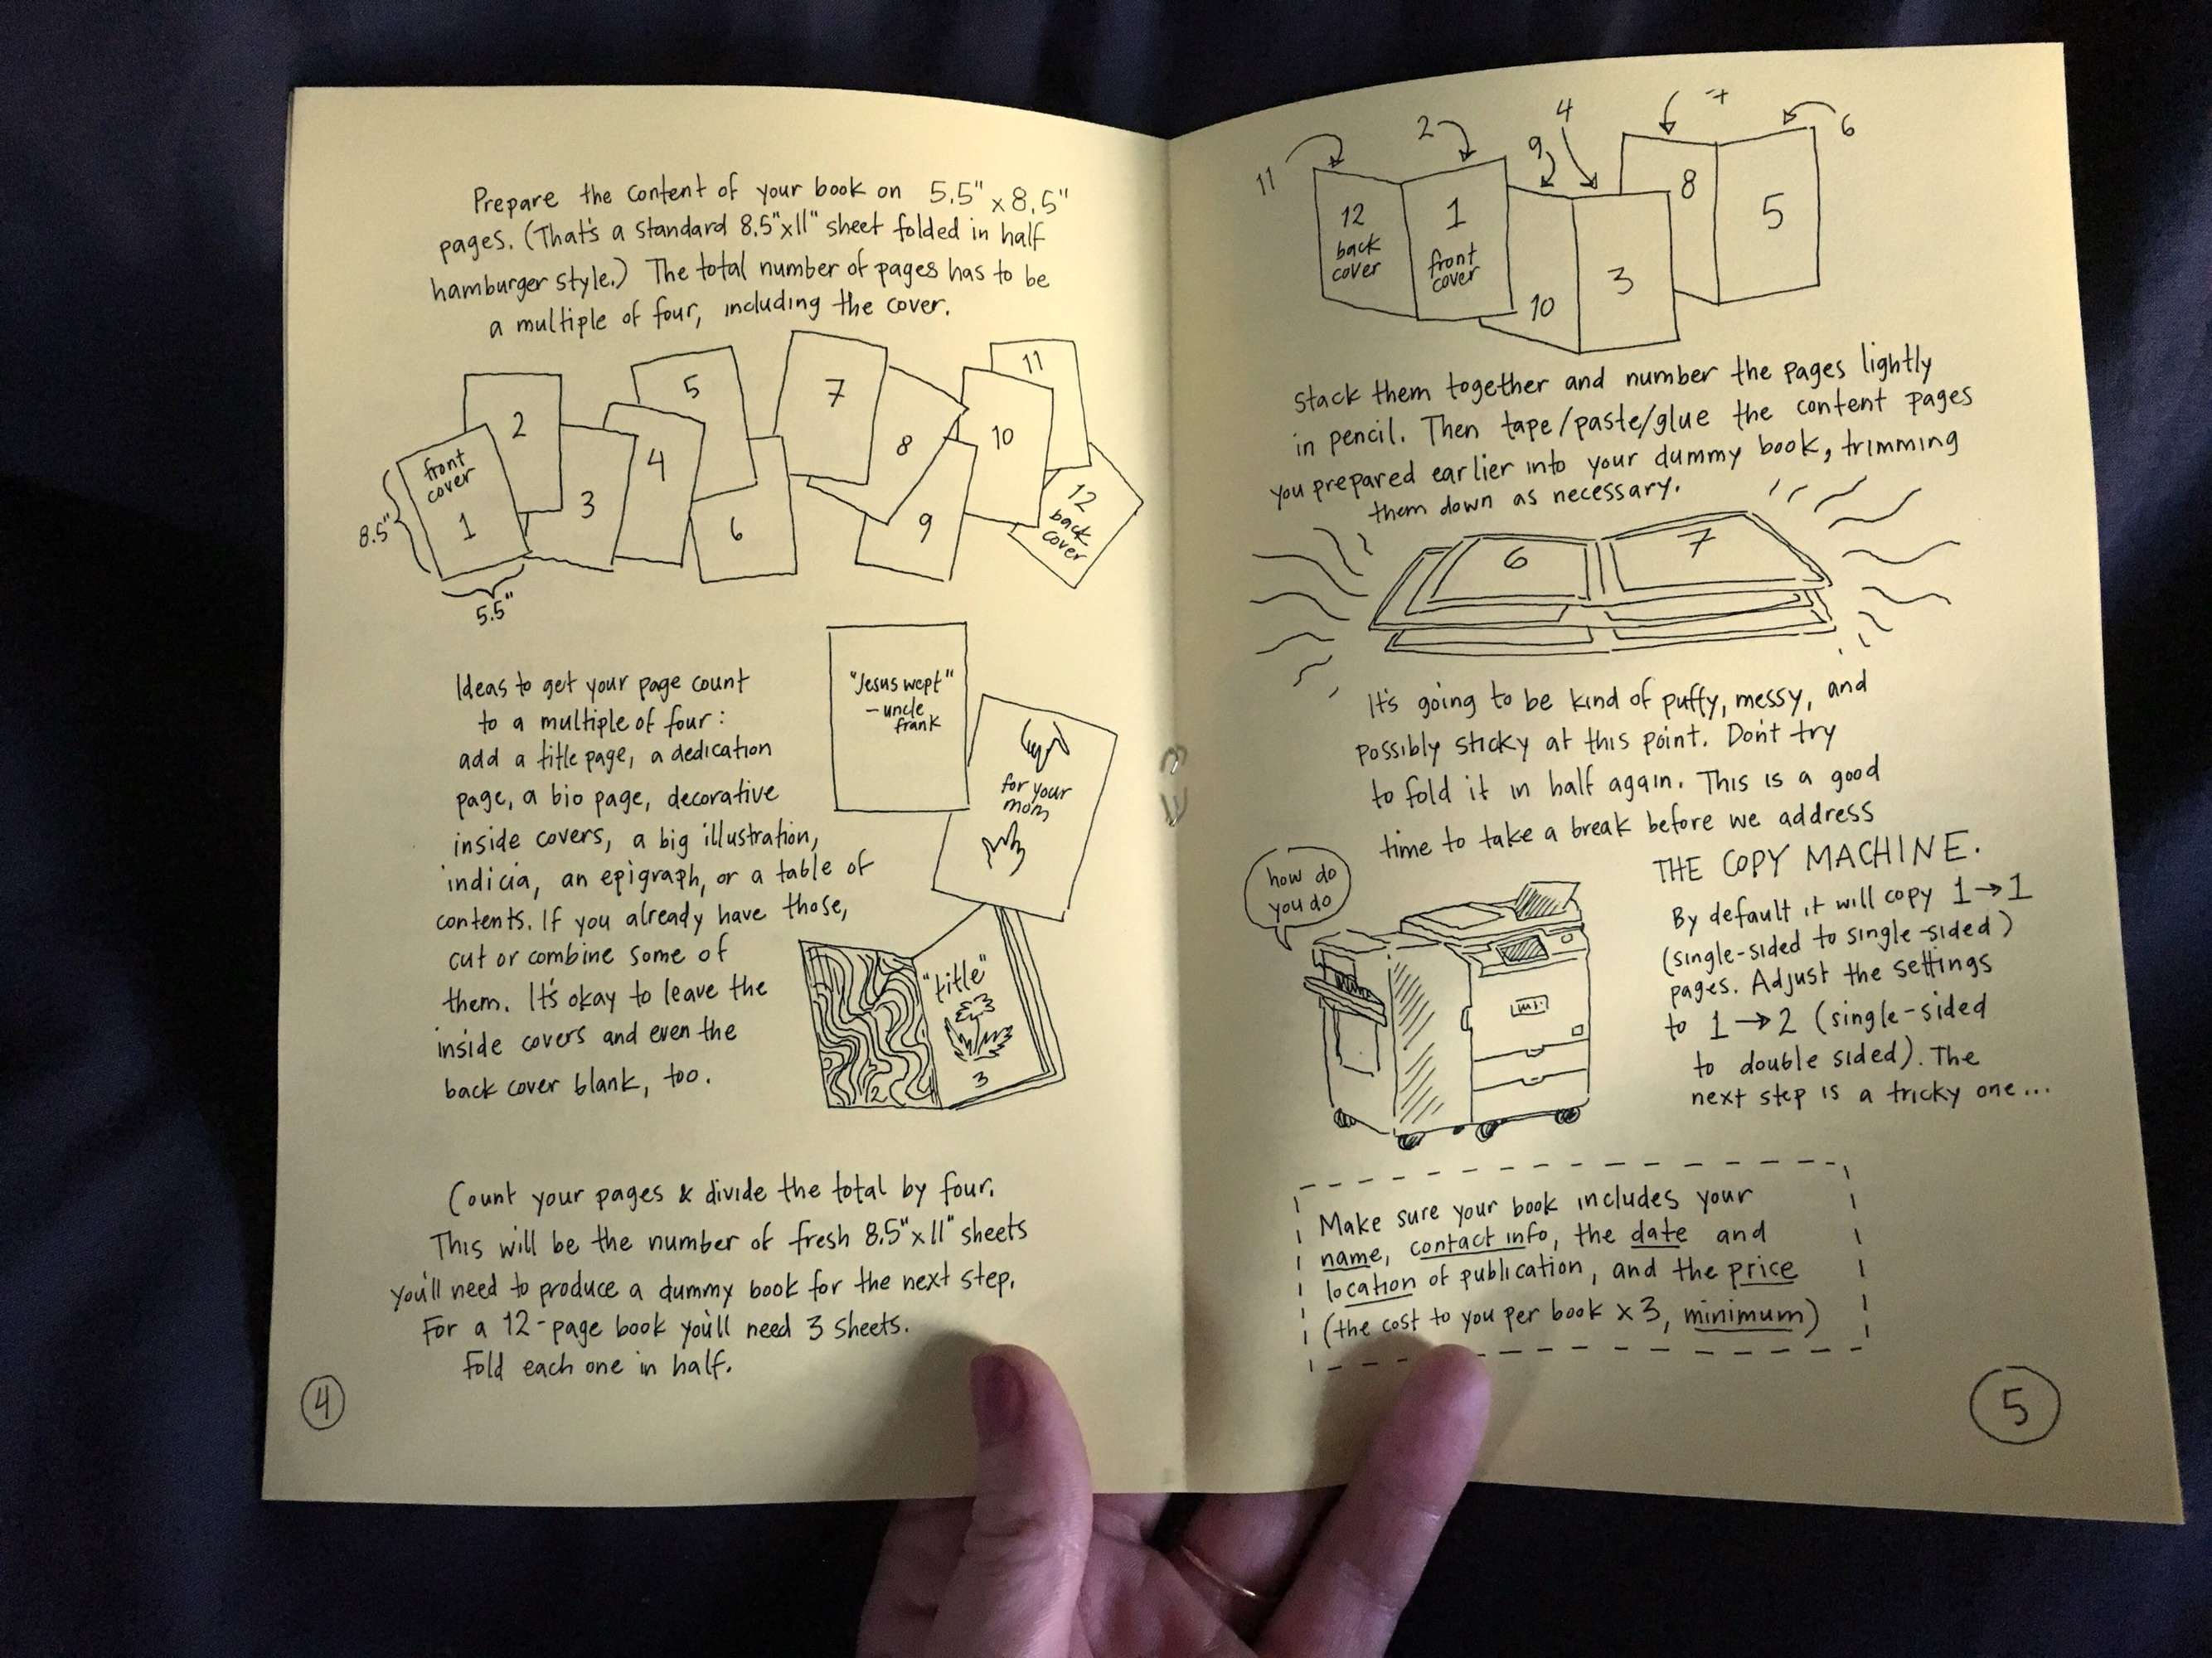 Prepare the content of your book on 5.5" x 8.5"
pages. (That's a standard 8.5"x11" sheet folded in half
hamburger style.) The total number of pages has to be
a multiple of four, including the cover.
front
cover
1
2
3
4
5
6
7
8
9
10
11
12
back
cover
8.5"
5.5"
Ideas to get your page count
to a multiple of four:
add a title page, a dedication
page, a bio page, decorative
inside covers, a big illustration,
indicia, an epigraph, or a table of
contents. If you already have those,
cut or combine some of
them. It's okay to leave the
inside covers and even the
back cover blank, too.
"Jesus wept"
– uncle
frank
for your
mom
"title"
2
3
Count your pages & divide the total by four.
This will be the number of fresh 8.5"x11" sheets
you'll need to produce a dummy book for the next step.
For a 12-page book you'll need 3 sheets.
Fold each one in half.
4
11
2
9
4
7
6
12
back
cover
1
front
cover
10
3
8
5
Stack them together and number the pages lightly
in pencil. Then tape/paste/glue the content pages
you prepared earlier into your dummy book, trimming
them down as necessary.
6
7
It's going to be kind of puffy, messy, and
possibly sticky at this point. Don't try
to fold it in half again. This is a good
time to take a break before we address
THE COPY MACHINE.
how do
you do
By default it will copy 1→1
(single-sided to single-sided)
pages. Adjust the settings
to 1→2 (single-sided
to double sided). The
next step is a tricky one...
Make sure your book includes your
name, contact info, the date and
location of publication, and the price
(the cost to you per book x 3, minimum)
5